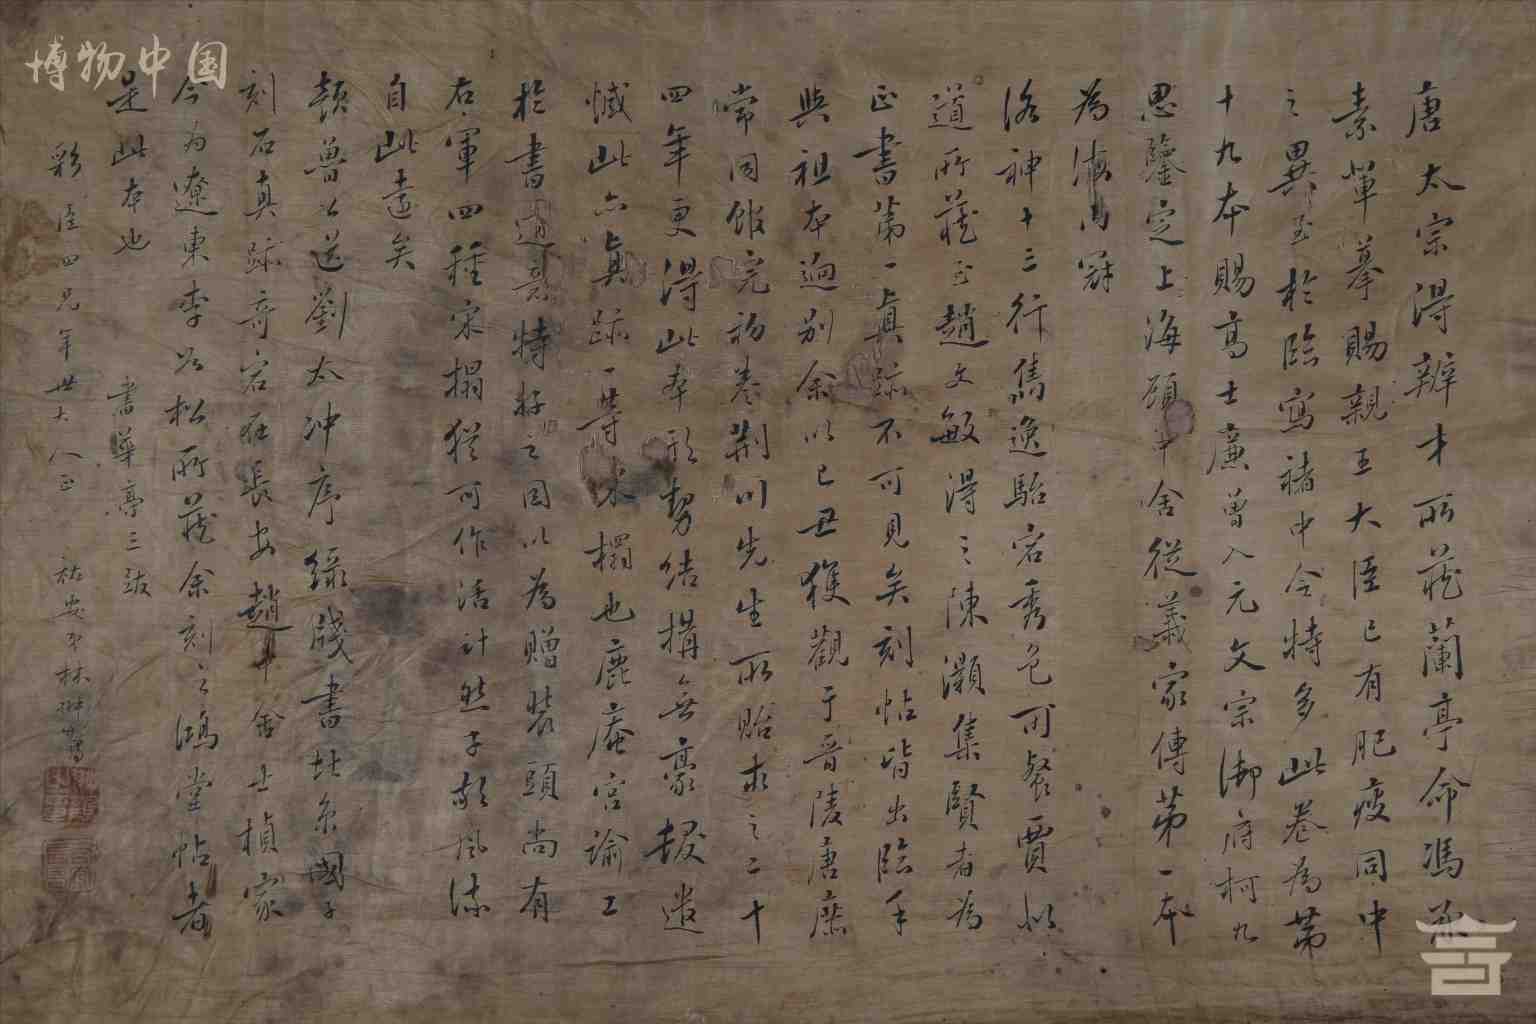 博物中国
唐太宗得辨才所藏蘭亭命馮承
素輩摹賜親王大臣已有肥瘦同中
之異至於臨寫褚中令特多此卷為第
十九本賜高士廉曾入元文宗御府柯九
思鑒定上海顧中舍從義家傳第一本
為海內冠
洛神十三行雋逸駘宕秀色可餐賈似
道所藏至趙文敏得之陳灝集賢者為
正書第一真跡不可見矣刻帖皆出臨手
與祖本迥別余以己丑獲觀于晉陵唐糜
常同館完初卷荆川先生所貽求之二十
四年更得此本形勢結搆無豪髮遺
憾此亦真跡一等米榻也鹿庵宮諭工
於書道意特好之因以為贈裝頭尚有
右軍四種宋搨猶可作活計然子敬風流
自此遠矣
顏魯公送劉太冲序綠牋書北京國子
刻石真跡奇宕在長安趙中舍士楨家
今为遼東李公松所藏余刻之鴻堂帖者
是此本也
書華亭三跋
彩臣四兄年世大人正